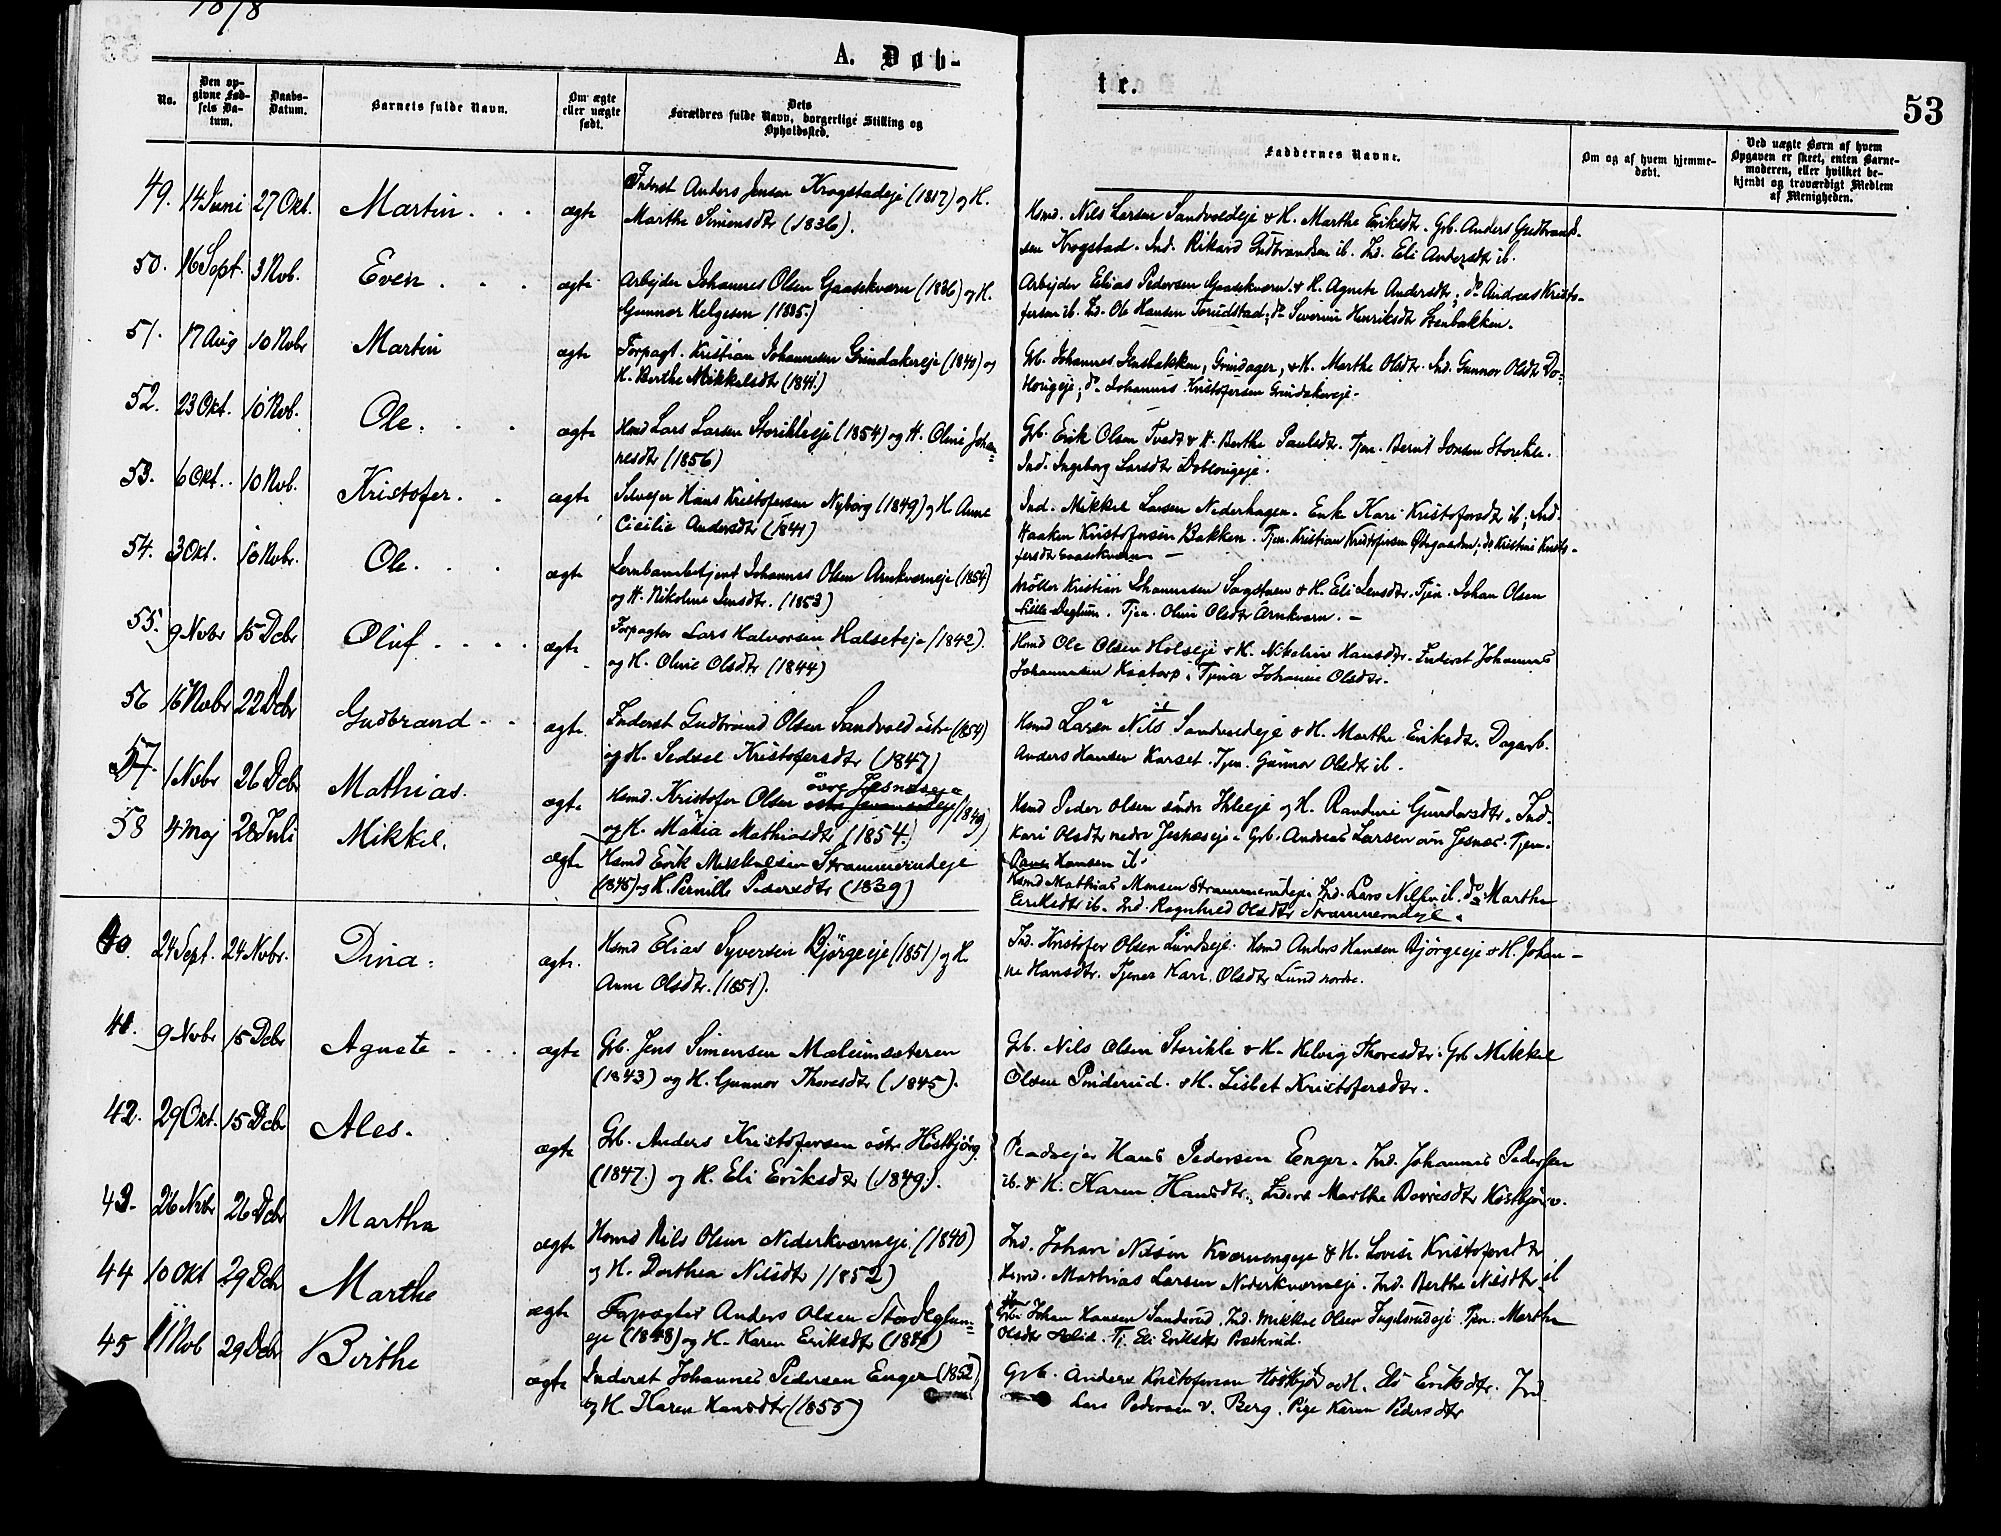 1878
A. Døb-
te.
53
No.
Den op-
givne Fød-
sels Da-
tum.
Daabs-
Datum.
Barnets fulde Navn.
Om ægte
eller uægte
født.
Dets
Forældres fulde Navn, borgerlige Stilling og
Opholdssted.
Faddernes Navne.
Om og af hvem hjemme-
døbt.
Ved uægte Børn af hvem
Opgaven er skeet, enten Barne-
moderen, eller hvilket be-
kjendt og troværdigt Medlem
af Menigheden.
49. 14 Juni 27 Okt. Martin. ægte
Inderst Anders Jensen Krogstadeje (1817) og H.
Marthe Simensdtr (1836).
Hsmd. Nils Larsen Sandvoldeje & H. Marthe Eriksdtr. Grb. Anders Gudbrand-
sen Krogstad. Ind. Rikard Gudbrandsen ib. Ind. Eli Andersdtr ib.
50. 16 Sept. 3 Nob. Even. ægte
Arbejder Johannes Olsen Gaasekværn (1836) og H.
Gunnor Helgesen (1835.)
Arbejder Elias Pedersen Gaasekværn & H. Agnete Andersdtr; do Andreas Kristo-
fersen ib. Ind. Ole Hansen Torudstad; do Severine Henriksdtr Stenbakken.
51. 17 Aug 10 Nobr Martin ægte
Forpagt. Kristian Johannesen Grindakereje (1840) og
H. Berthe Mikkelsdtr (1841.)
Grb. Johannes Jensbakken, Grindager, & H. Marthe Olsdtr. Ind. Gunnor Olsdtr Do-
blougeje; do Johannes Kristofersen Grindakereje.
52. 23 Okt. 10 Nob. Ole. ægte
Hsmd Lars Larsen Storihleeje (1854) og H. Oline Johan-
nesdtr (1856)
Grb. Erik Olsen Tvedt & H. Berthe Paulsdtr. Tjen. Bernt Jonsen Storihle.
Ind. Ingeborg Larsdtr Doblougeje.
53. 6 Okt. 10 Nob. Kristofer. ægte
Selvejer Hans Kristofersen Nyborg (1849) og H. Anne
Cicilie Andersdtr (1841)
Ind. Mikkel Larsen Nederhagen. Enke Kari Kristofersdtr ib; Ind.
Haaken Kristofersen Bakken. Tjen. Kristian Kristofersen Østgaarden; do Kristine Kristo-
fersdtr Gaasekværn.
54. 3 Okt. 10 Nobr. Ole. ægte
Jernbanebetjent Johannes Olsen Arnkværneje (1854)
og H. Nikoline Jensdtr. (1853)
Møller Kristian Johannesen Sagstuen & H. Eli Jensdtr. Tjen. Johan Olsen
Lille-Deglum. Tjen. Oline Olsdtr Arnkværn.
55. 9 Nobr 15 Dcbr Oluf. ægte
Forpagter Lars Halvorsen Halseteje (1842).
og H. Oline Olsdtr (1844)
Hsmd Ole Olsen Holseje & H. Nikoline Hansdtr. Inderst Johannes
Johannesen Kaatorp; Tjener Johanne Olsdtr.
56 16 Nobr 22 Dcbr Gudbrand ægte.
Inderst Gudbrand Olsen Sandvold østre (1854)
og H. Sedsel Kristofersdtr (1847)
Hsmd Larsen Nils Sandvoldeje & H. Marthe Eriksdtr. Dagarb.
Anders Hansen Korset. Tjen. Gunnor Olsdtr ib.
57. 1 Nobr 26 Dcbr Mathias. ægte
Hsmd. Kristofer Olsen øvre Jesnæseje (1849)
og H. Maria Mathiasdtr (1854.)
Hsmd Peder Olsen søndre Ihleeje og H. Randine Gundersdtr. Ind.
Kari Olsdtr nedre Jesnæseje. Grb. Andreas Larsen øvre Jesnæs. Tjen.
Hansen ib.
58 4 Maj 28 Juli Mikkel. ægte
Hsmd Erik Mikkelsen Strammerudeje
(1845) og H. Pernille Pedersdtr (1839)
Hsmd Mathias Monsen Strammerudeje. Ind. Lars Nilsen ib. do Marthe
Eriksdtr ib. Ind. Ragnhild Olsdtr Strammerudeje.
40. 24 Sept. 24 Nobr. Dina. ægte.
Hsmd Elias Syversen Bjørgeeje (1851) og H.
Anne Olsdtr. (1851).
Ind. Kristofer Olsen Lundseje. Hsmd Anders Hansen Bjørgeeje & H. Johan-
ne Hansdtr. Tjener Kari Olsdtr Lund nordre.
41. 9 Nobr 15 Dcbr Agnete ægte
Grb. Jens Simensen Mælumsæteren
(1843) og H. Gunnor Thoresdtr (1845).
Grb. Nils Olsen Storihle & H. Helvig Thoresdtr. Grb Mikkel
Olsen Pinderud. & H. Lisbet Kristofersdtr.
42. 29 Okt. 15 Dcbr Ales. ægte
Grb. Anders Kristofersen østre Høstbjørg
(1847.) og H. Eli Eriksdtr (1849).
Pladsejer Hans Pedersen Enger. Ind. Johannes Pedersen
ib. & H. Karen Hansdtr. Inders Marthe Hostbjør v.
43. 26 Nobr 26 Dcbr Martha ægte
Hsmd Nils Olsen Nederkværneje (1840)
og H. Dorthea Nilsdtr (1852)
Ind. Johan Nilsen Kværnengeje & H. Lovise Kristofersdtr
Hsmd. Mathias Larsen Nederkværneje. Ind. Berthe Nilsdtr ib
44 10 Okt 29 Dcbr Marthe ægte
Forpagter Anders Olsen Stordeglum-
eje (1848) og H. Karen Eriksdtr
Johan Hansen Sanderud. Ind. Mikkel Olsen Tjen. Marthe
Olsdtr Tj. Eli Eriksdtr
45 11 Nob 29 Dcbr Birthe ægte
Inderst Johannes Pedersen Enger (1852)
og H. Karen Hansdtr (1855)
Grb. Anders Kristofersen Høstbjør og H. Eli Eriksdtr. Ind
Lars Pedersen v. Berg. Pige Karen Pedersdtr